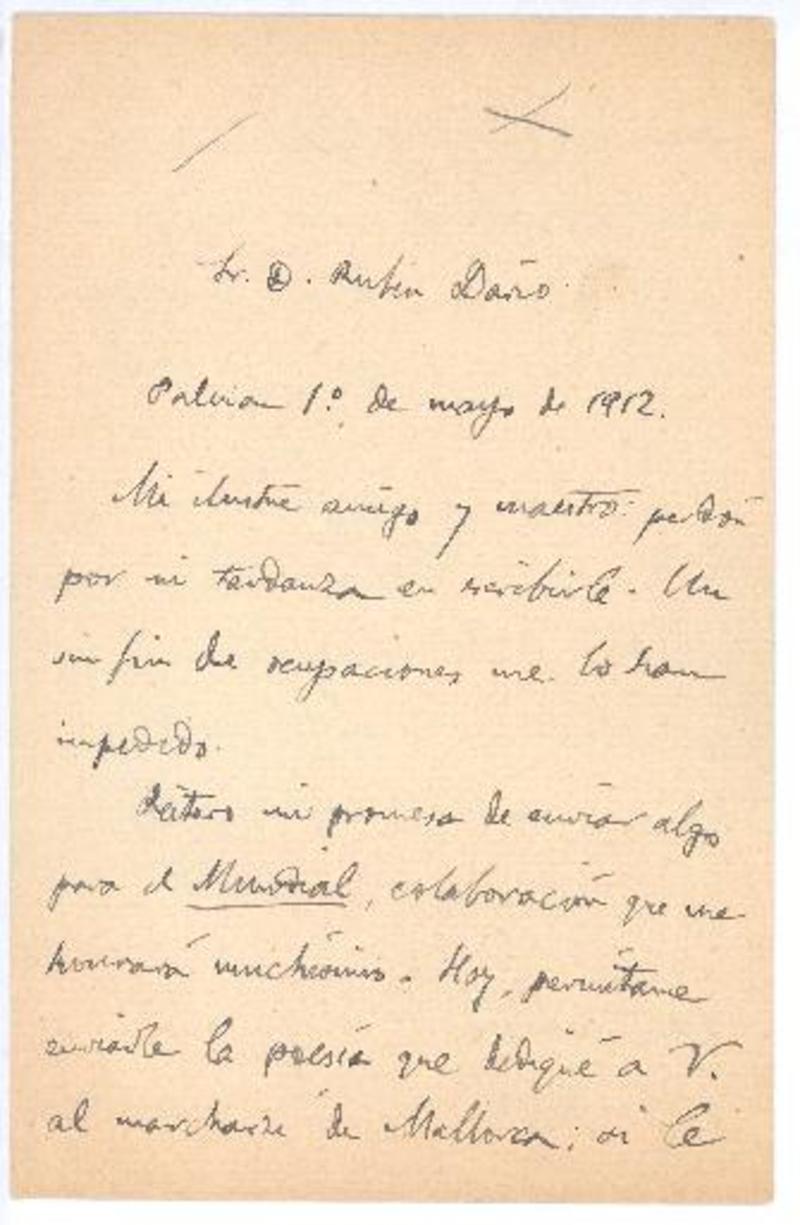 Sr. D. Rubén Darío.
Palma 1.º de mayo de 1912.
Mi ilustre amigo y maestro: perdón
por mi tardanza en escribirle. Un
sin fin de ocupaciones me lo han
impedido.
Reitero mi promesa de enviar algo
para el Mundial, colaboración que me
honrará muchísimo. Hoy, permítame
enviarle la poesía que dediqué a V.
al marcharse de Mallorca; si le